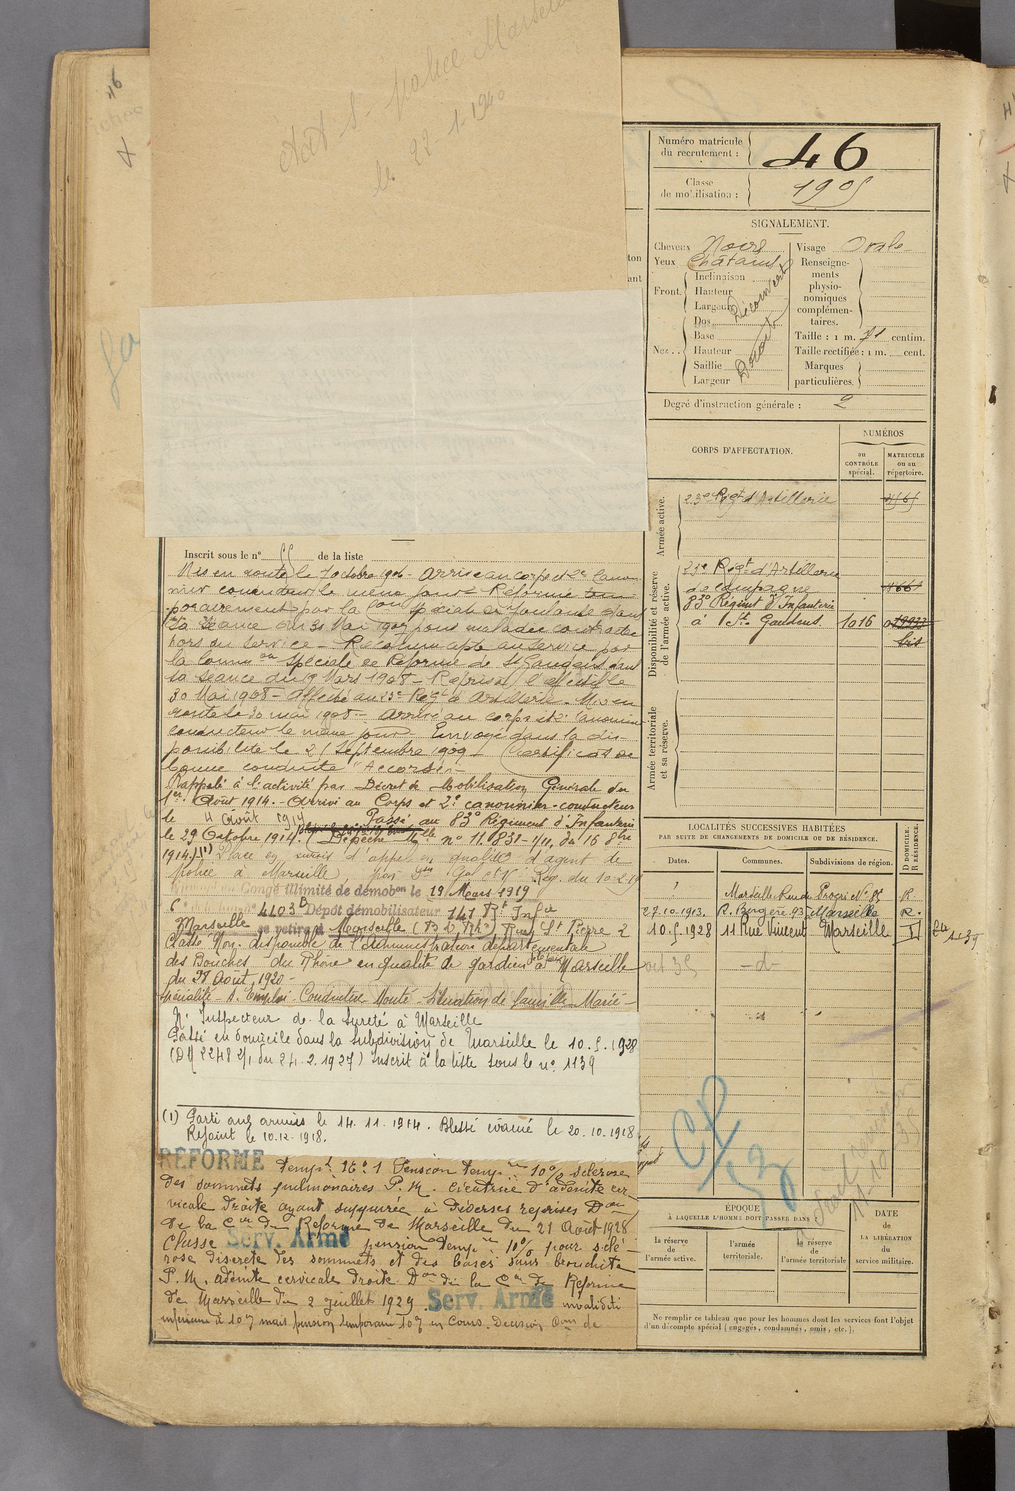 46
Agt S- police Marseille
le 22-1-1940
Numéro matricule du recrutement : 46
Classe de mobilisation : 1905
SIGNALEMENT.
Cheveux Noirs
Yeux Chatains
Front. Inclinaison
Hauteur
Largeur
Découvert
Nez.. Dos
Base
Hauteur
Saillie
Largeur
Droit
Visage Ovale
Renseigne-
ments
physio-
nomiques
complémen-
taires.
Taille : 1 m. 71 centim.
Taille rectifiée : 1 m. cent.
Marques
particulières.
Degré d'instruction générale : 2
CORPS D'AFFECTATION.
NUMÉROS
au CONTRÔLE spécial.
MATRICULE ou au répertoire.
Armée active.
23e Régt d'Artillerie
Disponibilité et réserve de l'armée active.
23e Régt d'Artillerie
de campagne
83e Régiment d'Infanterie
à St Gaudens 1016
bis
Armée territoriale et sa réserve.
Inscrit sous le n° 55 de la liste
Mis en route le 7 octobre 1906. Arrivé au corps et 2e canon-
nier conducteur le même jour. Réformé tem-
porairement par la Con spéciale de Toulouse dans
sa séance du 31 Mai 1907 pour maladie contractée
hors du service - Reconnu apte au service par
la Common spéciale de Réforme de St Gaudens dans
sa séance du 19 Mars 1908 - Repris à l'effectif le
30 Mai 1908 - Affecté au 23e Régt d'Artillerie. Mis en
route le 30 mai 1908 - Arrivé au corps et 2e canonnier
conducteur le même jour. Envoyé dans la dis-
ponibilité le 25 Septembre 1909. Certificat de
bonne conduite "Accordé" -
Rappelé à l'activité par Décret de Mobilisation Générale du
1er Août 1914. Arrivé au Corps et 2e canonnier-conducteur
le 4 Août 1914 Passé au 83e Régiment d'Infanterie
le 29 Octobre 1914. (Dépêche Mlle n° 11.832-1/11, du 16 8bre
1914) (1) Placé en sursis d'appel en qualité d'agent de
police à Marseille,
Congé illimité de démobon le 19 Mars 1919
4403 Dépôt démobilisateur 141 Rt Infie
Marseille se retire à Marseille (B. D. Rh) Rue St Pierre 2
Classé Non-disponible de l'Administration départementale
des Bouches du Rhône en qualité de gardien à Marseille
du 28 Août 1920 -
Spécialité - d'Emploi. Conducteur Monté. Situation de famille. Marié -
N. Inspecteur de la Sureté à Marseille
Passé en domicile dans la subdivision de Marseille le 10.5.1928
(DM 2248 2/1 du 24.2.1927) Inscrit à la liste sous le n° 1139
(1) Parti aux armées le 14.11.1914. Blessé évacué le 20.10.1918.
Rejoint le 10-12-1918.
RÉFORMÉ Tempt N° 1 Pension Tempre 10% sclérose
des sommets pulmonaires P. M. cicatrice d'adénite cer-
vicale droite ayant suppurée à diverses reprises Don
de la Con de Réforme de Marseille du 21 Août 1928
Classé Serv. Armé pension tempre 10% pour sclé-
rose discrète des sommets et des bases sans bronchite
P. M. adénite cervicale droite Don de la Con de Réforme
de Marseille du 2 juillet 1929. Serv. Armé invalidité
inférieure à 10% mais pension temporaire 10% en cours. Décision Com de
LOCALITÉS SUCCESSIVES HABITÉES
PAR SUITE DE CHANGEMENTS DE DOMICILE OU DE RÉSIDENCE.
Dates. Communes. Subdivisions de région. D DOMICILE. R RÉSIDENCE.
Marseille Rue du Progrès N° 85 R
27.10.1913. R. Bergère 93 Marseille R.
10.5.1928 11 Rue Vincent Marseille D
1139
oct 35 - d -
CP
53
ÉPOQUE
À LAQUELLE L'HOMME DOIT PASSER DANS
la réserve de l'armée active.
l'armée territoriale.
la réserve de l'armée territoriale
DATE DE LA LIBÉRATION du service militaire.
Ne remplir ce tableau que pour les hommes dont les services font l'objet
d'un décompte spécial (engagés, condamnés, omis, etc.).